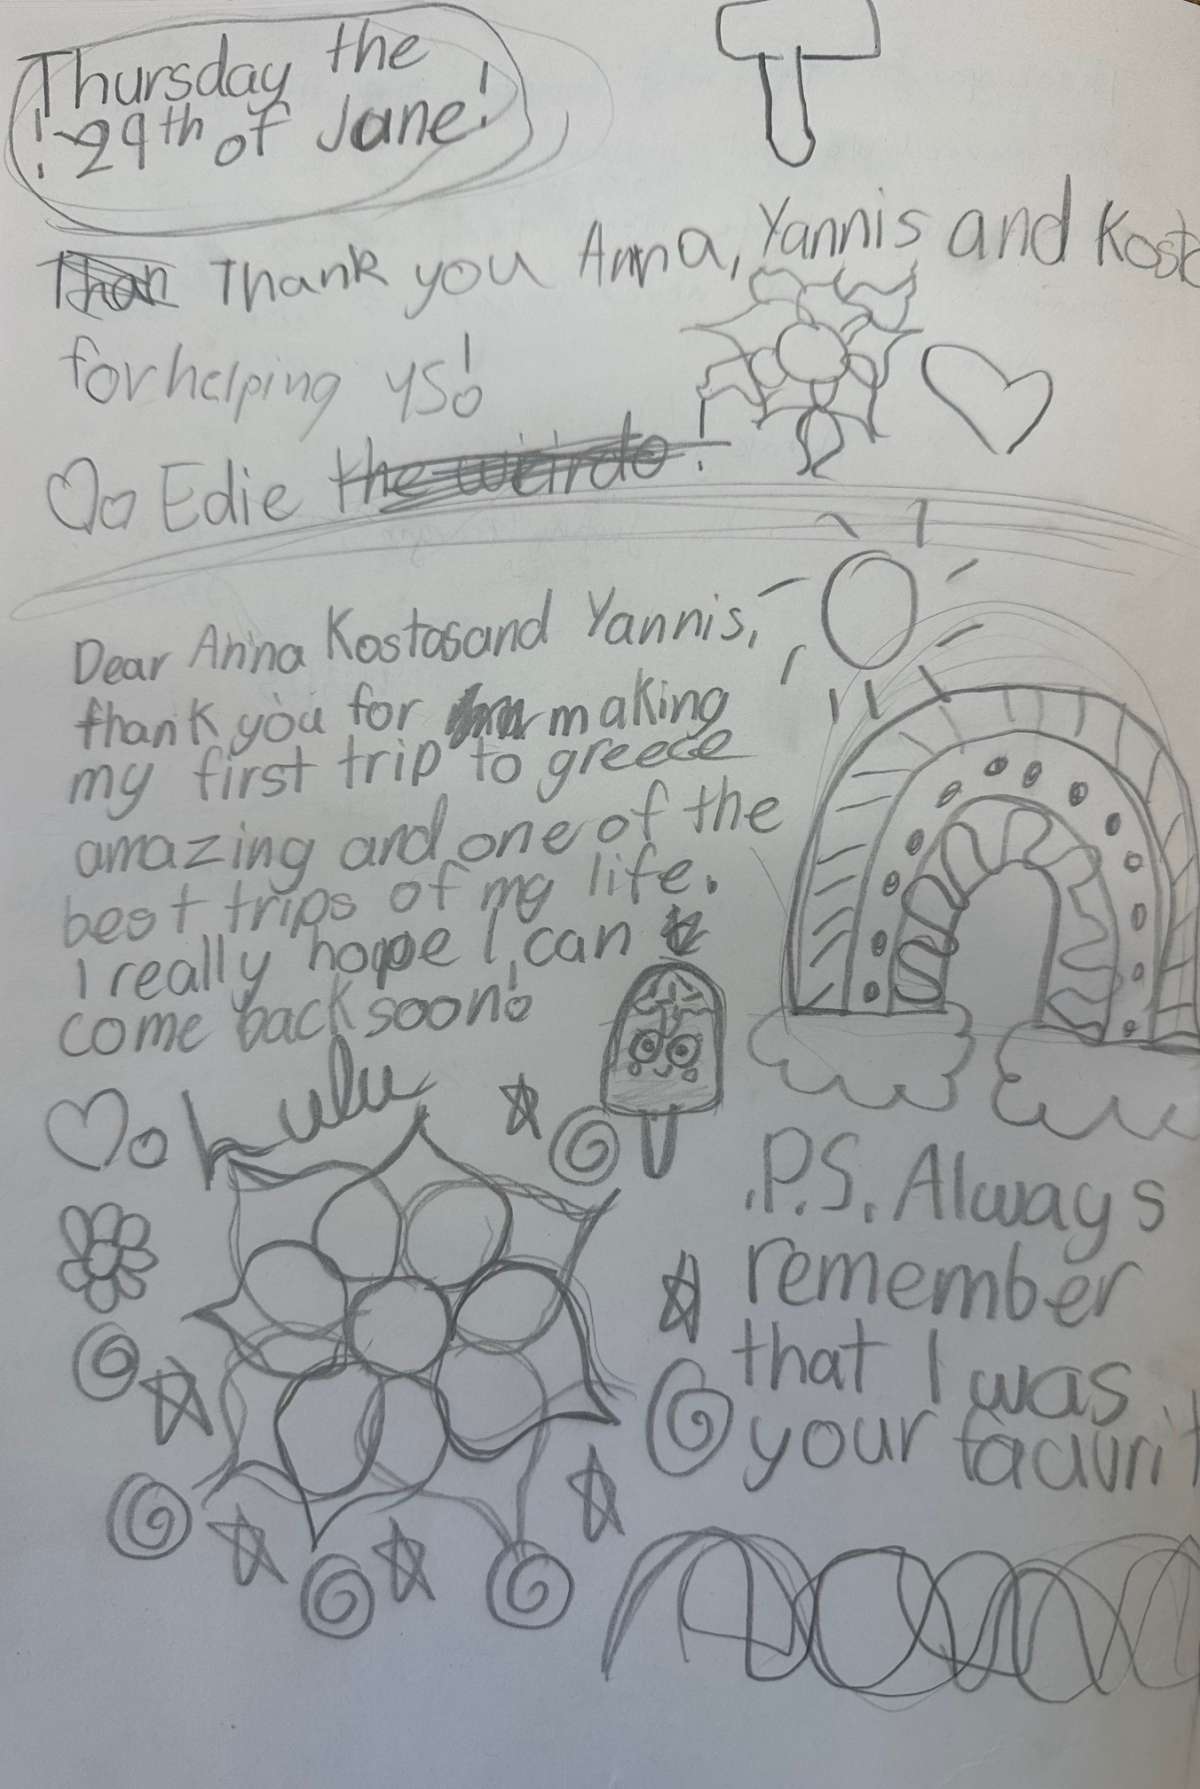 Thursday the
! 29th of Jane!
Than Thank you Anna, Yannis and Kosta
for helping us!
Edie the weirdo!
Dear Anna Kostas and Yannis,
thank you for making
my first trip to greece
amazing and one of the
best trips of my life.
I really hope I can
come back soon!
Lulu
P.S. Always
remember
that I was
your favurit